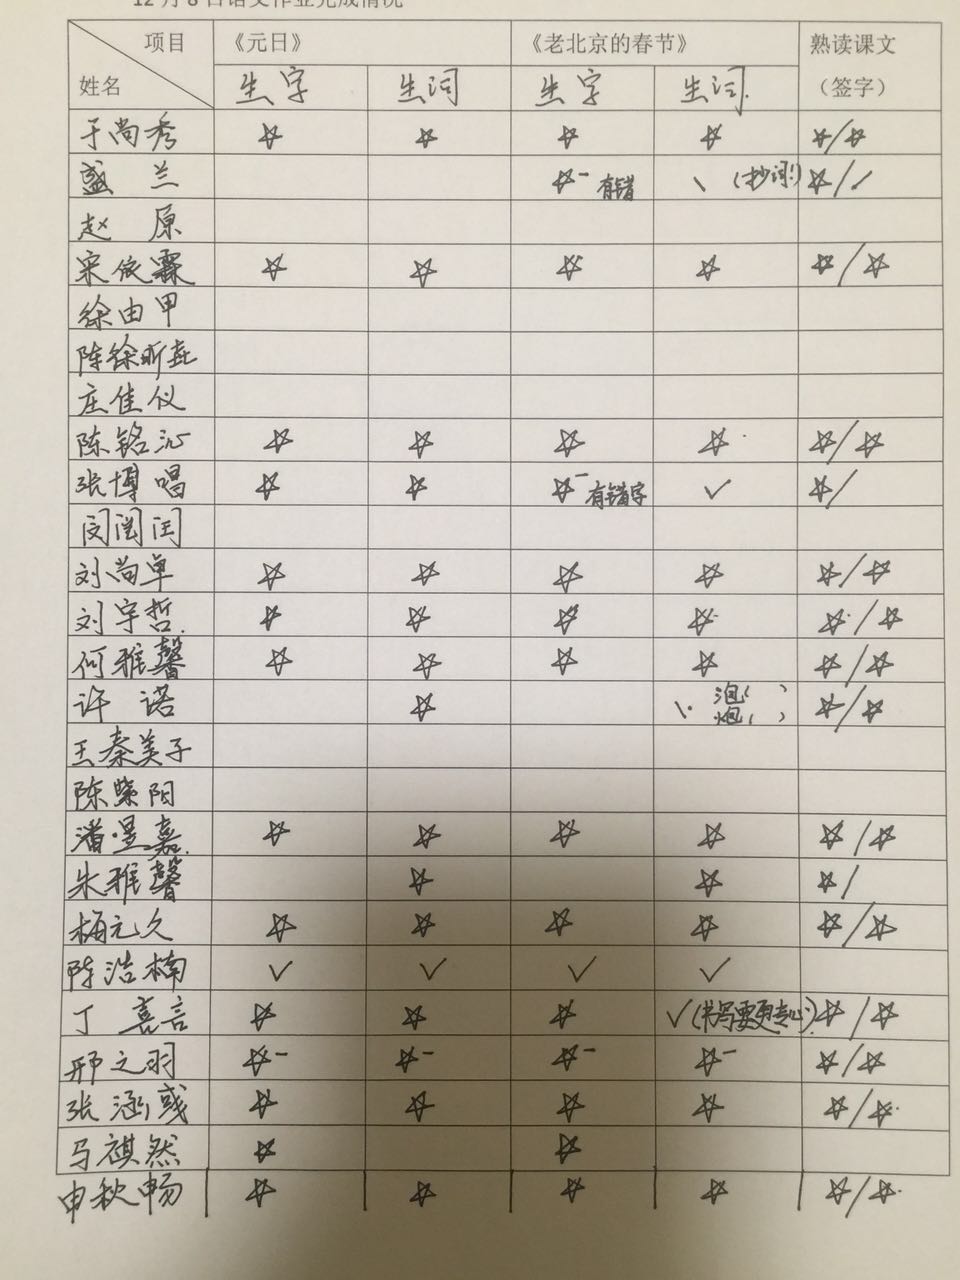 12月8日语文作业完成情况
项目 《元日》 《老北京的春节》 熟读课文
姓名 生字 生词 生字 生词 （签字）
于尚秀 ☆ ☆ ☆ ☆ ☆/☆
盛兰 ☆- 有错 \ (抄词!) ☆/✓
赵原
宋依霖 ☆ ☆ ☆ ☆ ☆/☆
徐由甲
陈徐昕垚
庄佳仪
陈铭沁 ☆ ☆ ☆ ☆ ☆/☆
张博唱 ☆ ☆ ☆- 有错字 ✓ ☆/
闵闰
刘尚卓 ☆ ☆ ☆ ☆ ☆/☆
刘宇哲 ☆ ☆ ☆ ☆ ☆/☆
何雅馨 ☆ ☆ ☆ ☆ ☆/☆
许诺 ☆ \ 泡( ) 炮( ) ☆/☆
王秦美子
陈紫阳
潘昱嘉 ☆ ☆ ☆ ☆ ☆/☆
朱雅馨 ☆ ☆ ☆/
杨元久 ☆ ☆ ☆ ☆ ☆/☆
陈浩楠 ✓ ✓ ✓ ✓
丁喜言 ☆ ☆ ☆ ✓(书写要更专心) ☆/☆
邢之羽 ☆- ☆- ☆- ☆- ☆/☆
张涵彧 ☆ ☆ ☆ ☆ ☆/☆
马祺然 ☆ ☆
申秋畅 ☆ ☆ ☆ ☆ ☆/☆